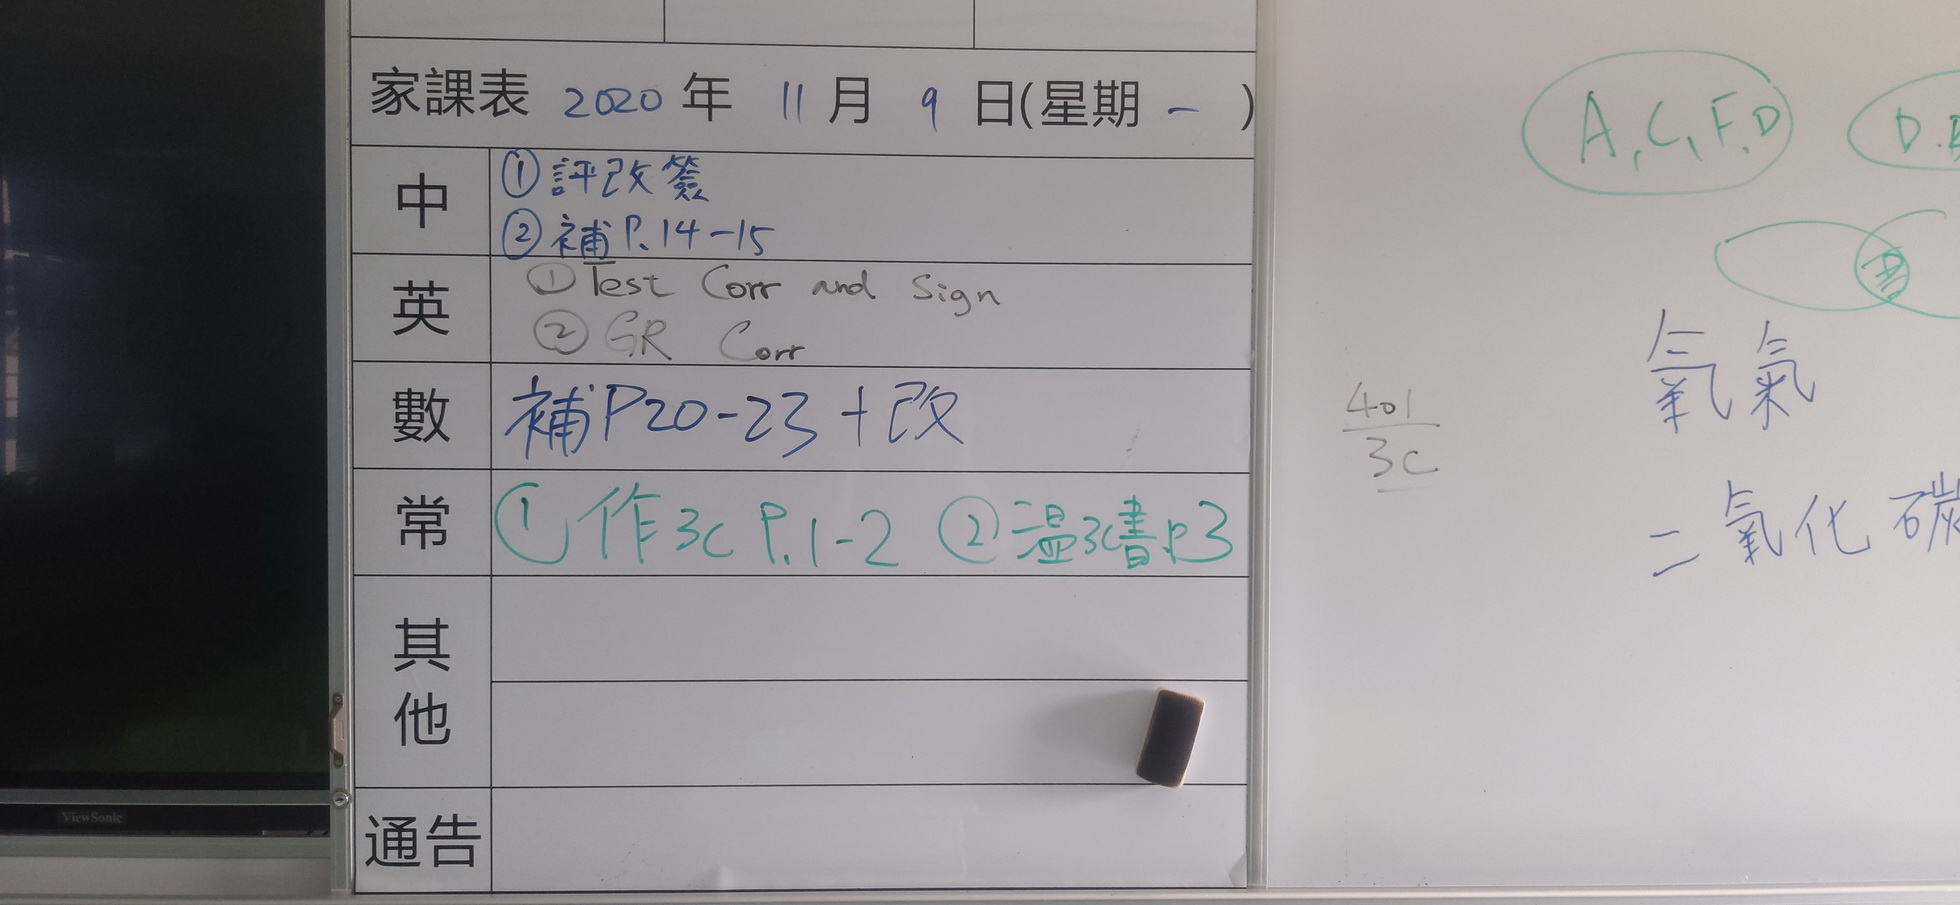 家課表 2020 年 11 月 9 日(星期 一 )
中
①評改簽
②補P.14-15
英
①Test Corr and Sign
②GR Corr
數
補P20-23+改
常
①作3C P.1-2 ②溫3C書P.3
其他
通告
ViewSonic
401
3C
A,C,F,D
D.
氧氣
二氧化碳